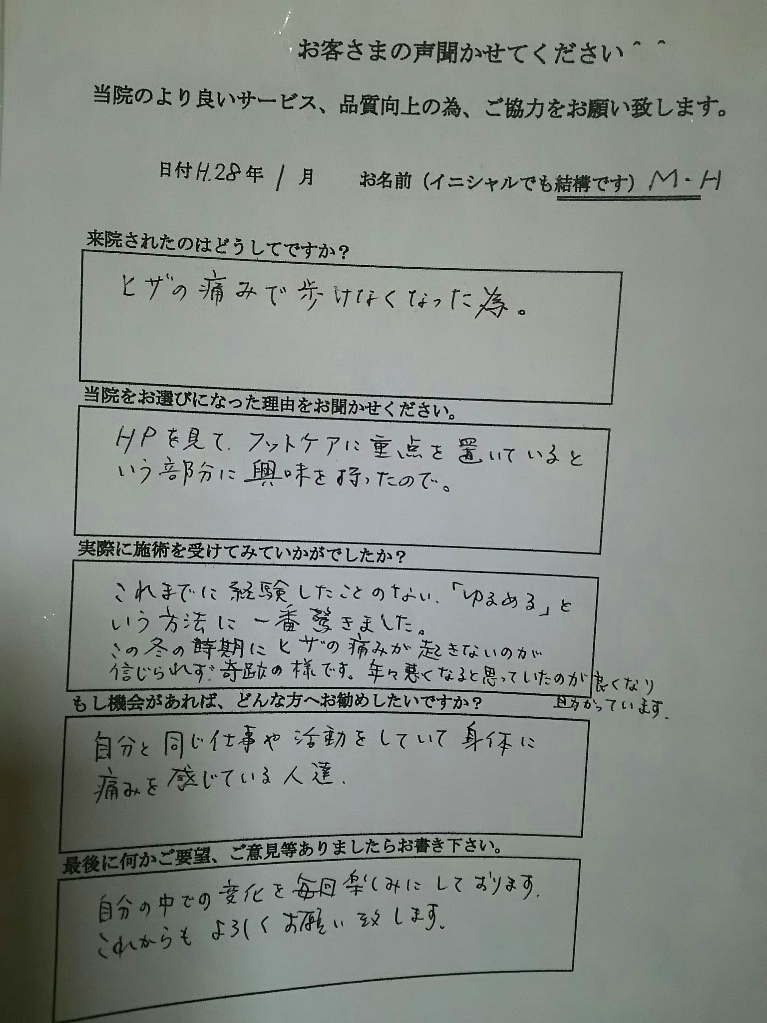 お客さまの声聞かせてください＾＾
当院のより良いサービス、品質向上の為、ご協力をお願い致します。
日付H.28年 1月 お名前（イニシャルでも結構です）M・H
来院されたのはどうしてですか？
ヒザの痛みで歩けなくなった為。
当院をお選びになった理由をお聞かせください。
HPを見て、フットケアに重点を置いていると
いう部分に興味を持ったので。
実際に施術を受けてみていかがでしたか？
これまでに経験したことのない、「ゆるめる」と
いう方法に一番驚きました。
この冬の時期にヒザの痛みが起きないのが
信じられず、奇跡の様です。年々悪くなると思っていたのが良くなり
助かっています。
もし機会があれば、どんな方へお勧めしたいですか？
自分と同じ仕事や活動をしていて身体に
痛みを感じている人達.
最後に何かご要望、ご意見等ありましたらお書き下さい。
自分の中での変化を毎回楽しみにしております.
これからもよろしくお願い致します.